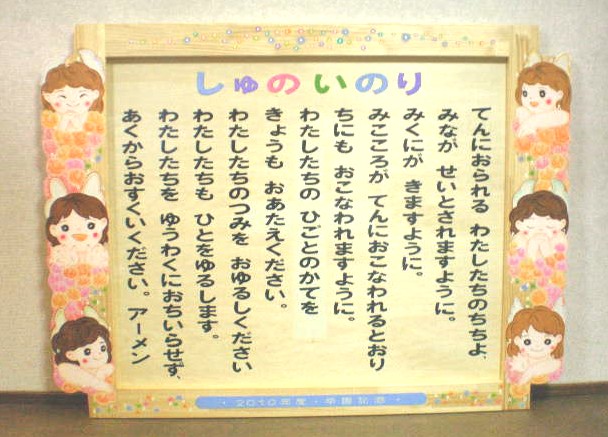 しゅのいのり
てんにおられる わたしたちのちちよ、
みなが せいとされますように。
みくにが きますように。
みこころが てんにおこなわれるとおり
ちにも おこなわれますように。
わたしたちの ひごとのかてを
きょうも おあたえください。
わたしたちのつみを おゆるしください
わたしたちも ひとをゆるします。
わたしたちを ゆうわくにおちいらせず、
あくからおすくいください。 アーメン
・2010年度・卒園記念・